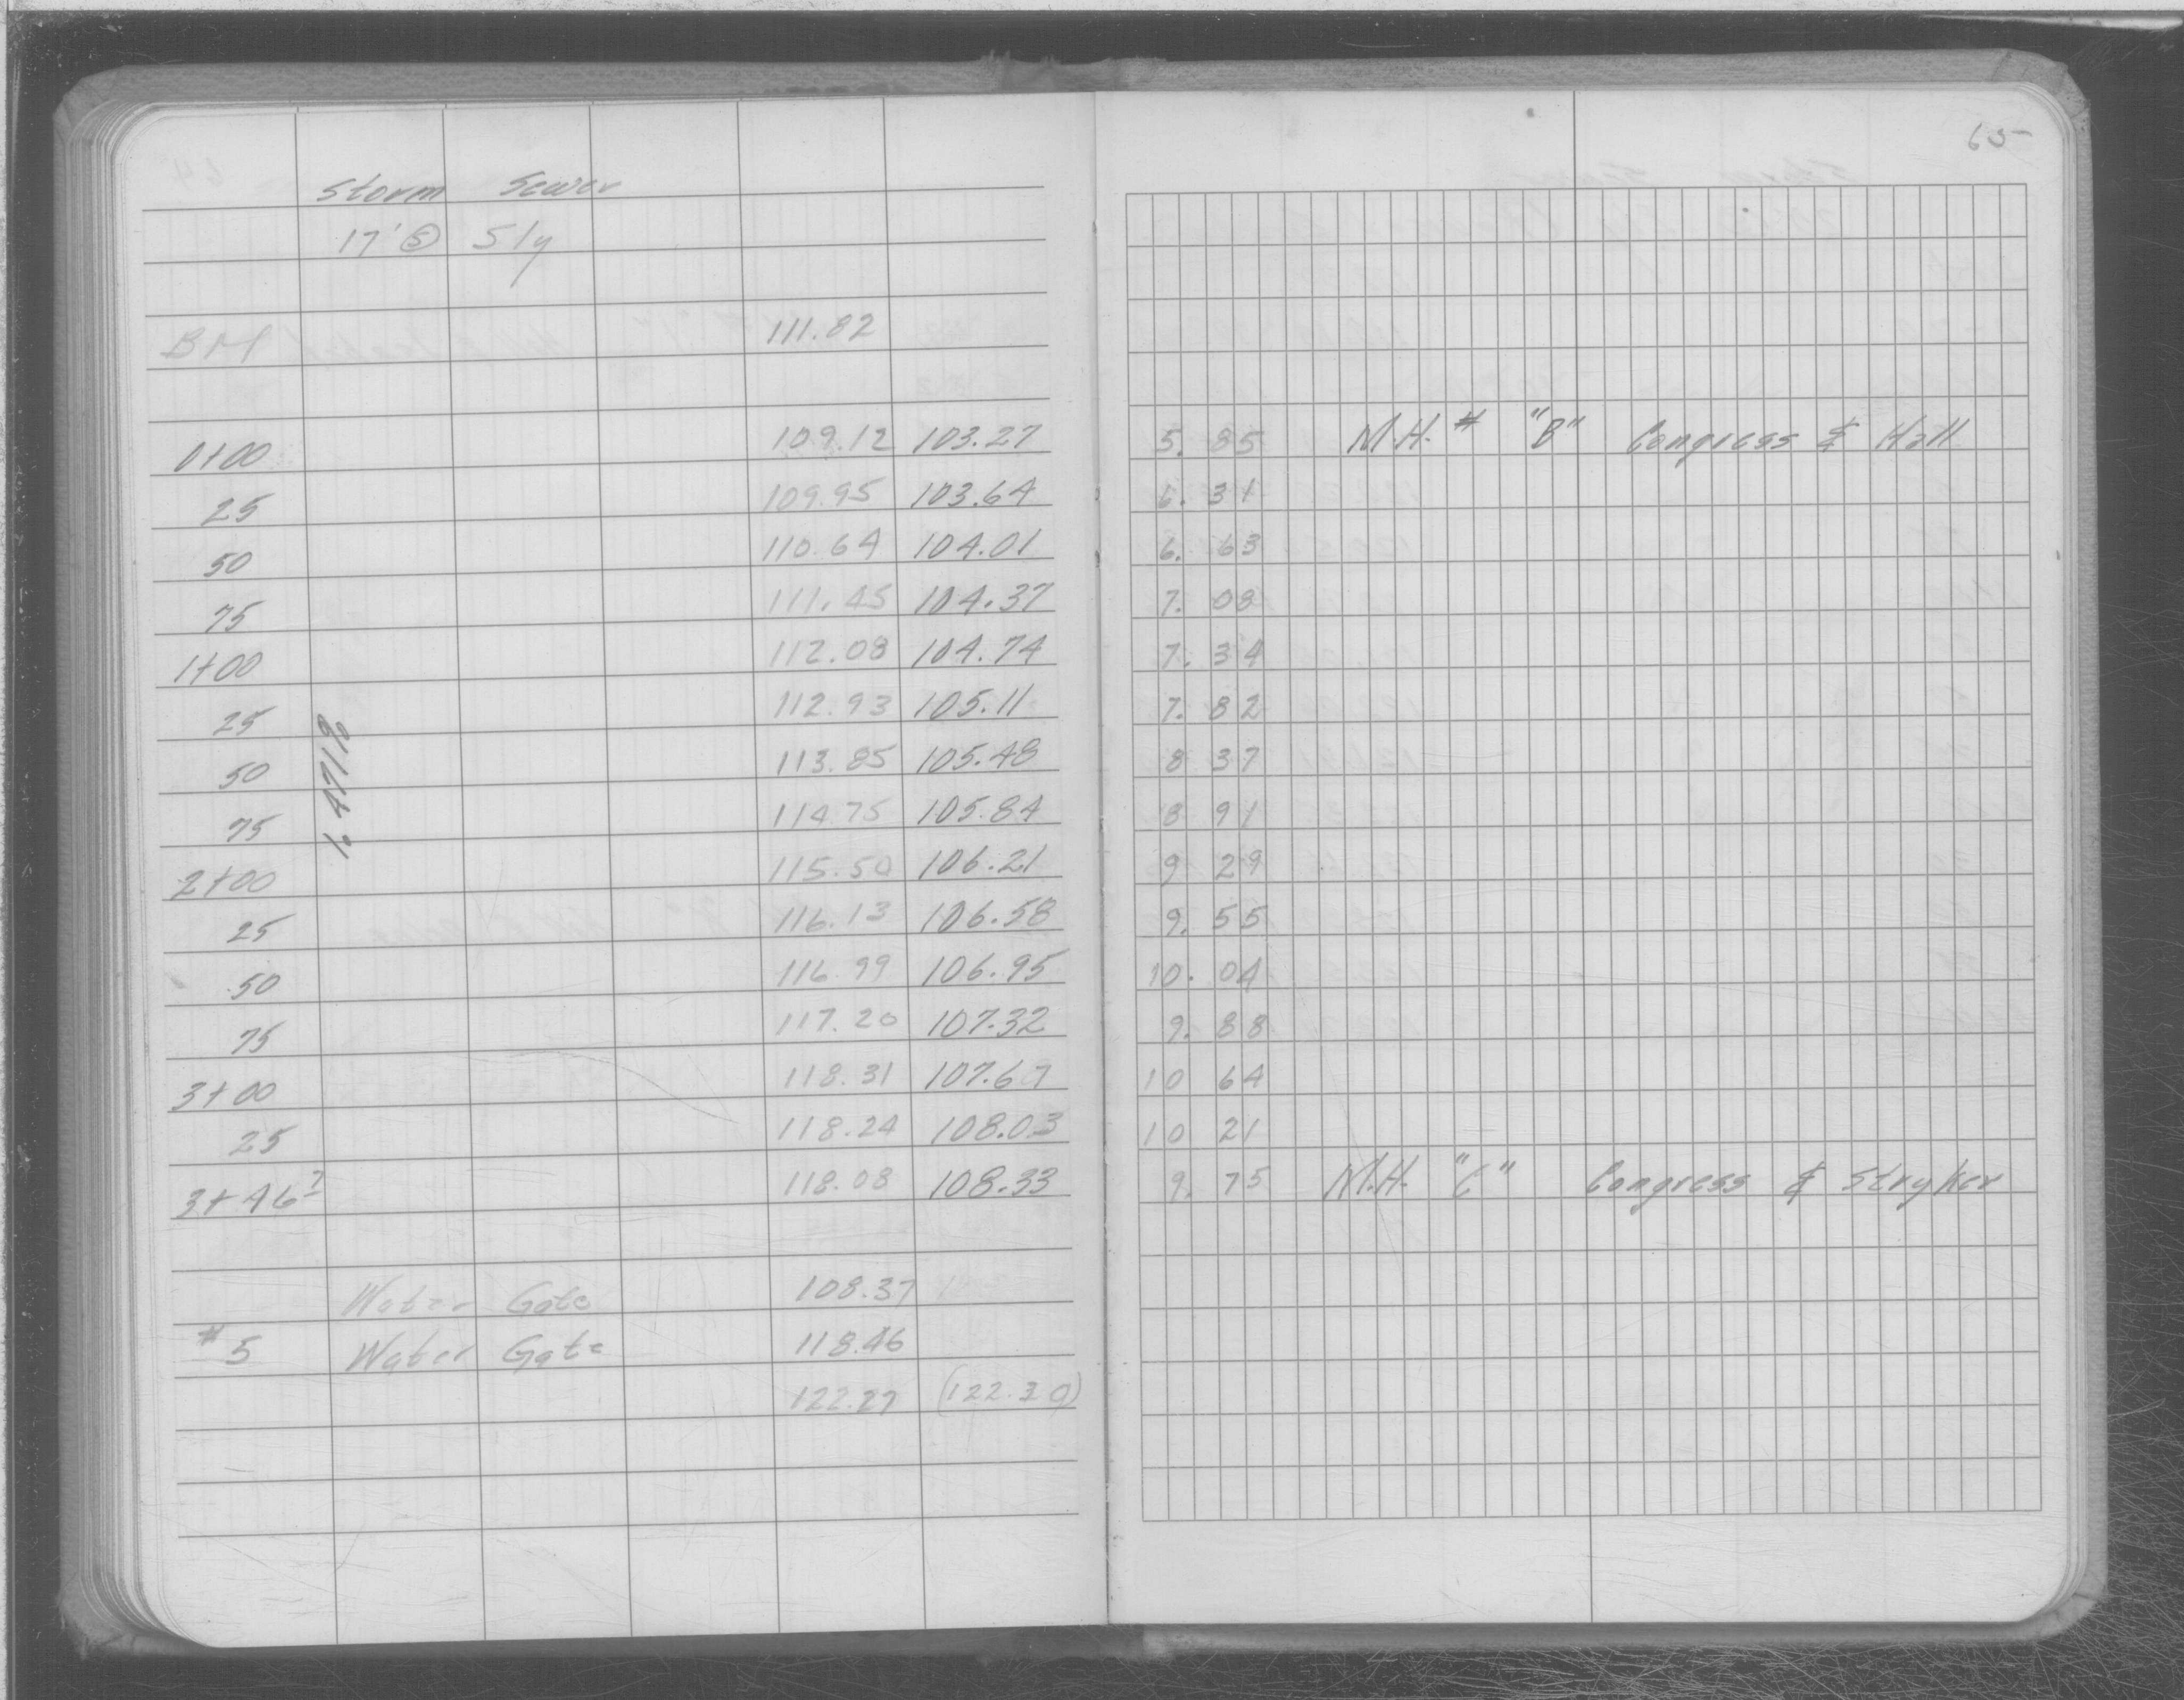 65
Storm Sewer
17' Ⓢ S'ly
BM 111.82
0+00 109.12 103.27 5.85 M.H. # "B" Congress & Hall
25 109.95 103.64 6.31
50 110.64 104.01 6.63
75 111.45 104.37 7.08
1+00 112.08 104.74 7.34
25 112.93 105.11 7.82
50 113.85 105.48 8 37
75 114.75 105.84 8 91
2+00 115.50 106.21 9 29
25 116.13 106.58 9.55
50 116.99 106.95 10.04
75 117.20 107.32 9.88
3+00 118.31 107.67 10 64
25 118.24 108.03 10 21
3+46⁷ 118.08 108.33 9.75 M.H. "C" Congress & Stryker
Water Gate 108.37
#5 Water Gate 118.46
122.27 (122.30)